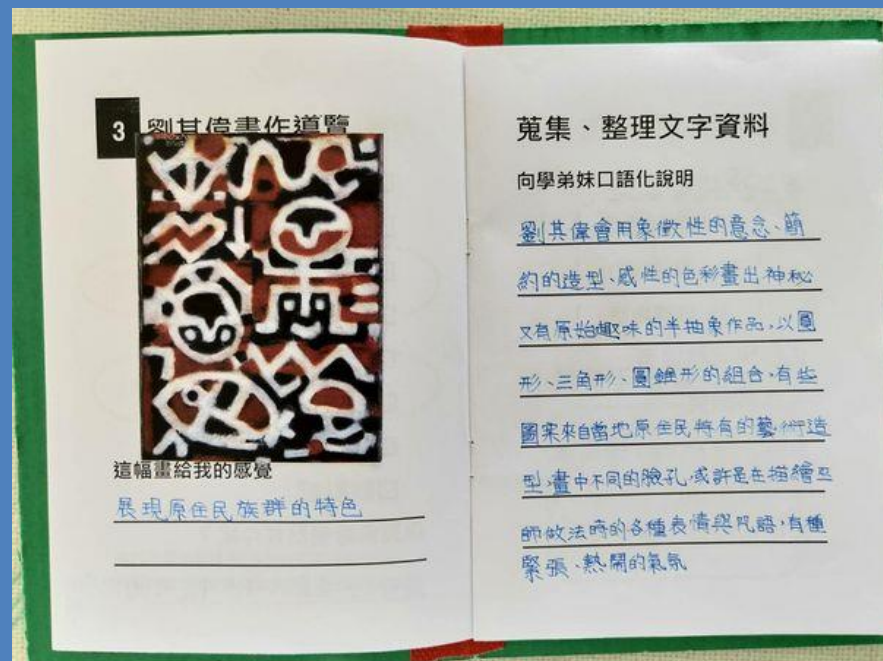 3 劉其偉畫作導覽
這幅畫給我的感覺
展現原住民族群的特色
蒐集、整理文字資料
向學弟妹口語化說明
劉其偉會用象徵性的意念、簡
約的造型、感性的色彩畫出神秘
又有原始趣味的半抽象作品，以圓
形、三角形、圓錐形的組合，有些
圖案來自當地原住民特有的藝術造
型，畫中不同的臉孔，或許是在描繪巫
師做法時的各種表情與咒語，有種
緊張、熱鬧的氣氛